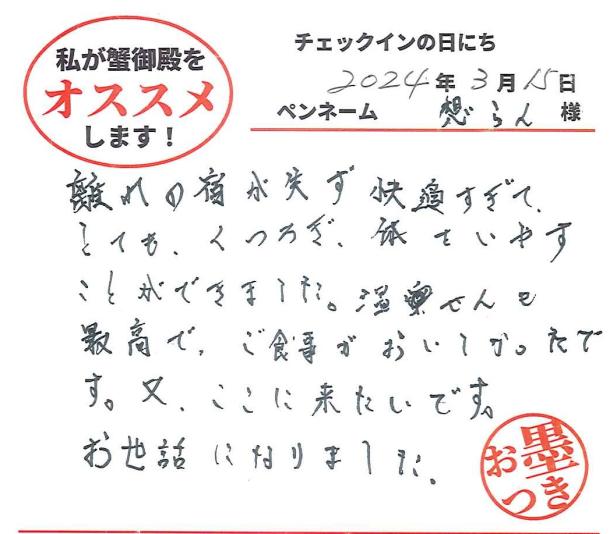 私が蟹御殿を
オススメ
します！
チェックインの日にち
2024年3月15日
ペンネーム 想らん 様
離れの宿が失ず快適すぎて、
とても、くつろぎ、体をいやす
ことができました。温泉せんも
最高で、ご食事がおいしかったで
す。又、ここに来たいです。
お世話になりました。
お墨
つき